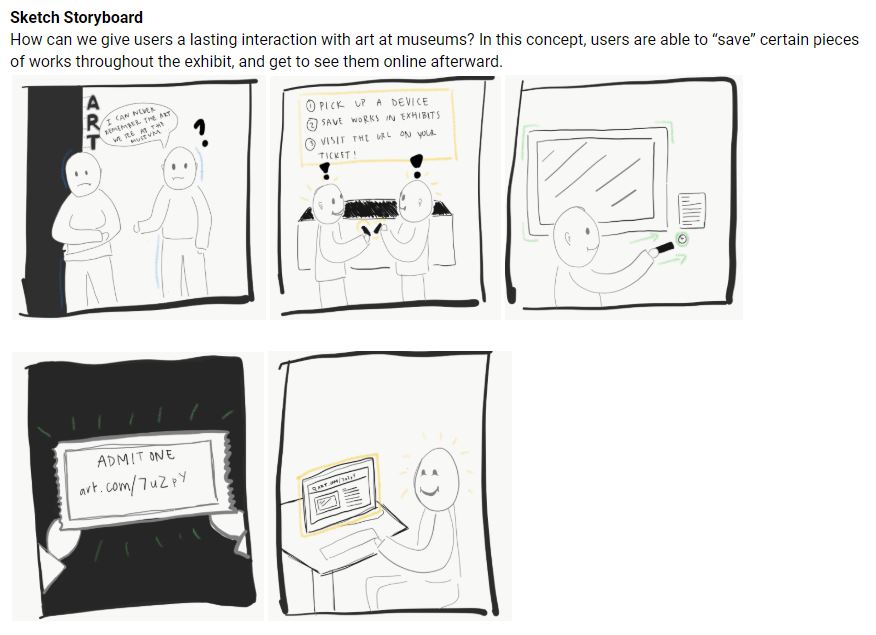 Sketch Storyboard
How can we give users a lasting interaction with art at museums? In this concept, users are able to “save” certain pieces
of works throughout the exhibit, and get to see them online afterward.
ART
I CAN NEVER
REMEMBER THE ART
WE SEE AT THE
MUSEUM
?
① PICK UP A DEVICE
② SAVE WORKS IN EXHIBITS
③ VISIT THE URL ON YOUR
TICKET!
! !
ADMIT ONE
art.com/7uZpY